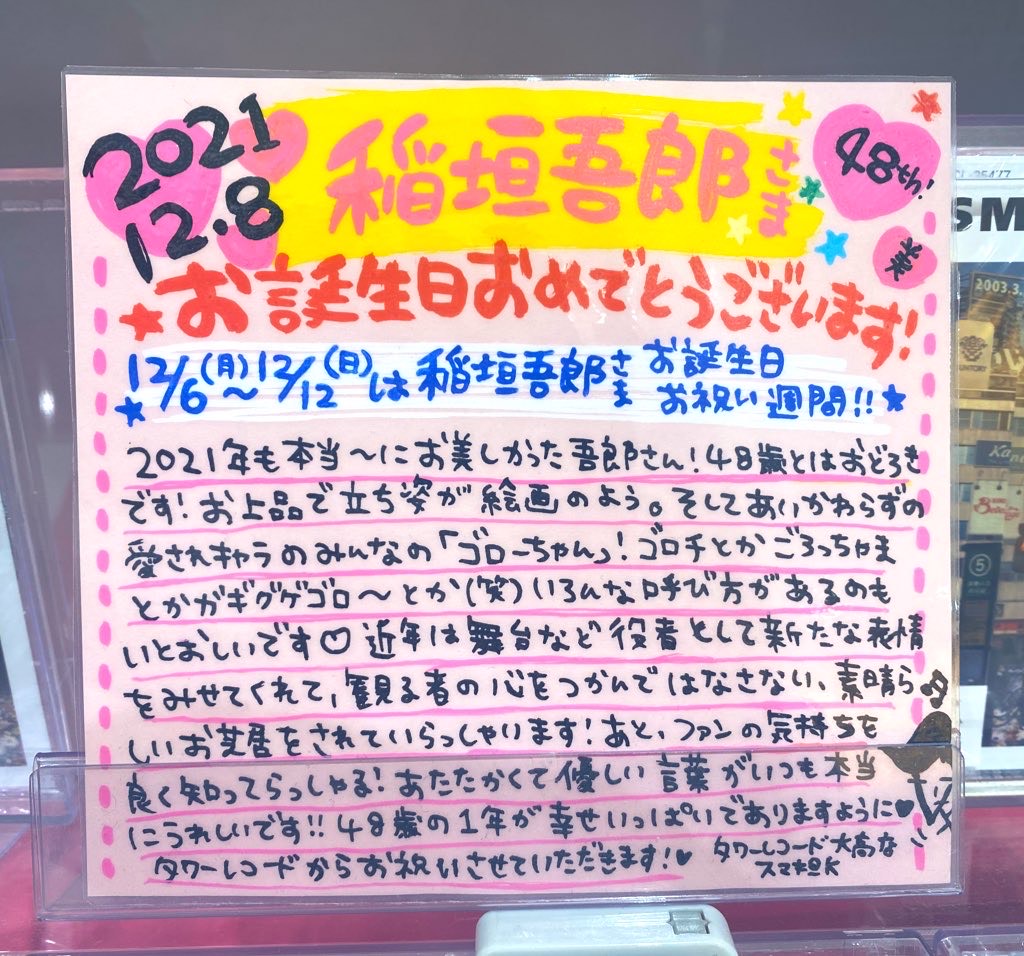 2021
12.8
稲垣吾郎さま
48th!
祭
お誕生日おめでとうございます!
12/6(月)～12/12(日)は稲垣吾郎さま
お誕生日
お祝い週間!!
2021年も本当～にお美しかった吾郎さん!48歳とはおどろき
です!お上品で立ち姿が絵画のよう。そしてあいかわらずの
愛されキャラのみんなの「ゴローちゃん」!ゴロチとかごろっちゃま
とかガギグゲゴロ～とか(笑)いろんな呼び方があるのも
いとおしいです♡近年は舞台など役者として新たな表情
をみせてくれて、観る者の心をつかんではなさない、素晴ら
しいお芝居をされていらっしゃいます!あと、ファンの気持ちを
良く知ってらっしゃる!あたたかくて優しい言葉がいつも本当
にうれしいです!!48歳の1年が幸せいっぱいでありますように♥
タワーレコードからお祝いさせていただきます!♥
タワーレコード大高な
スマ担K
SM
2003.3.
5